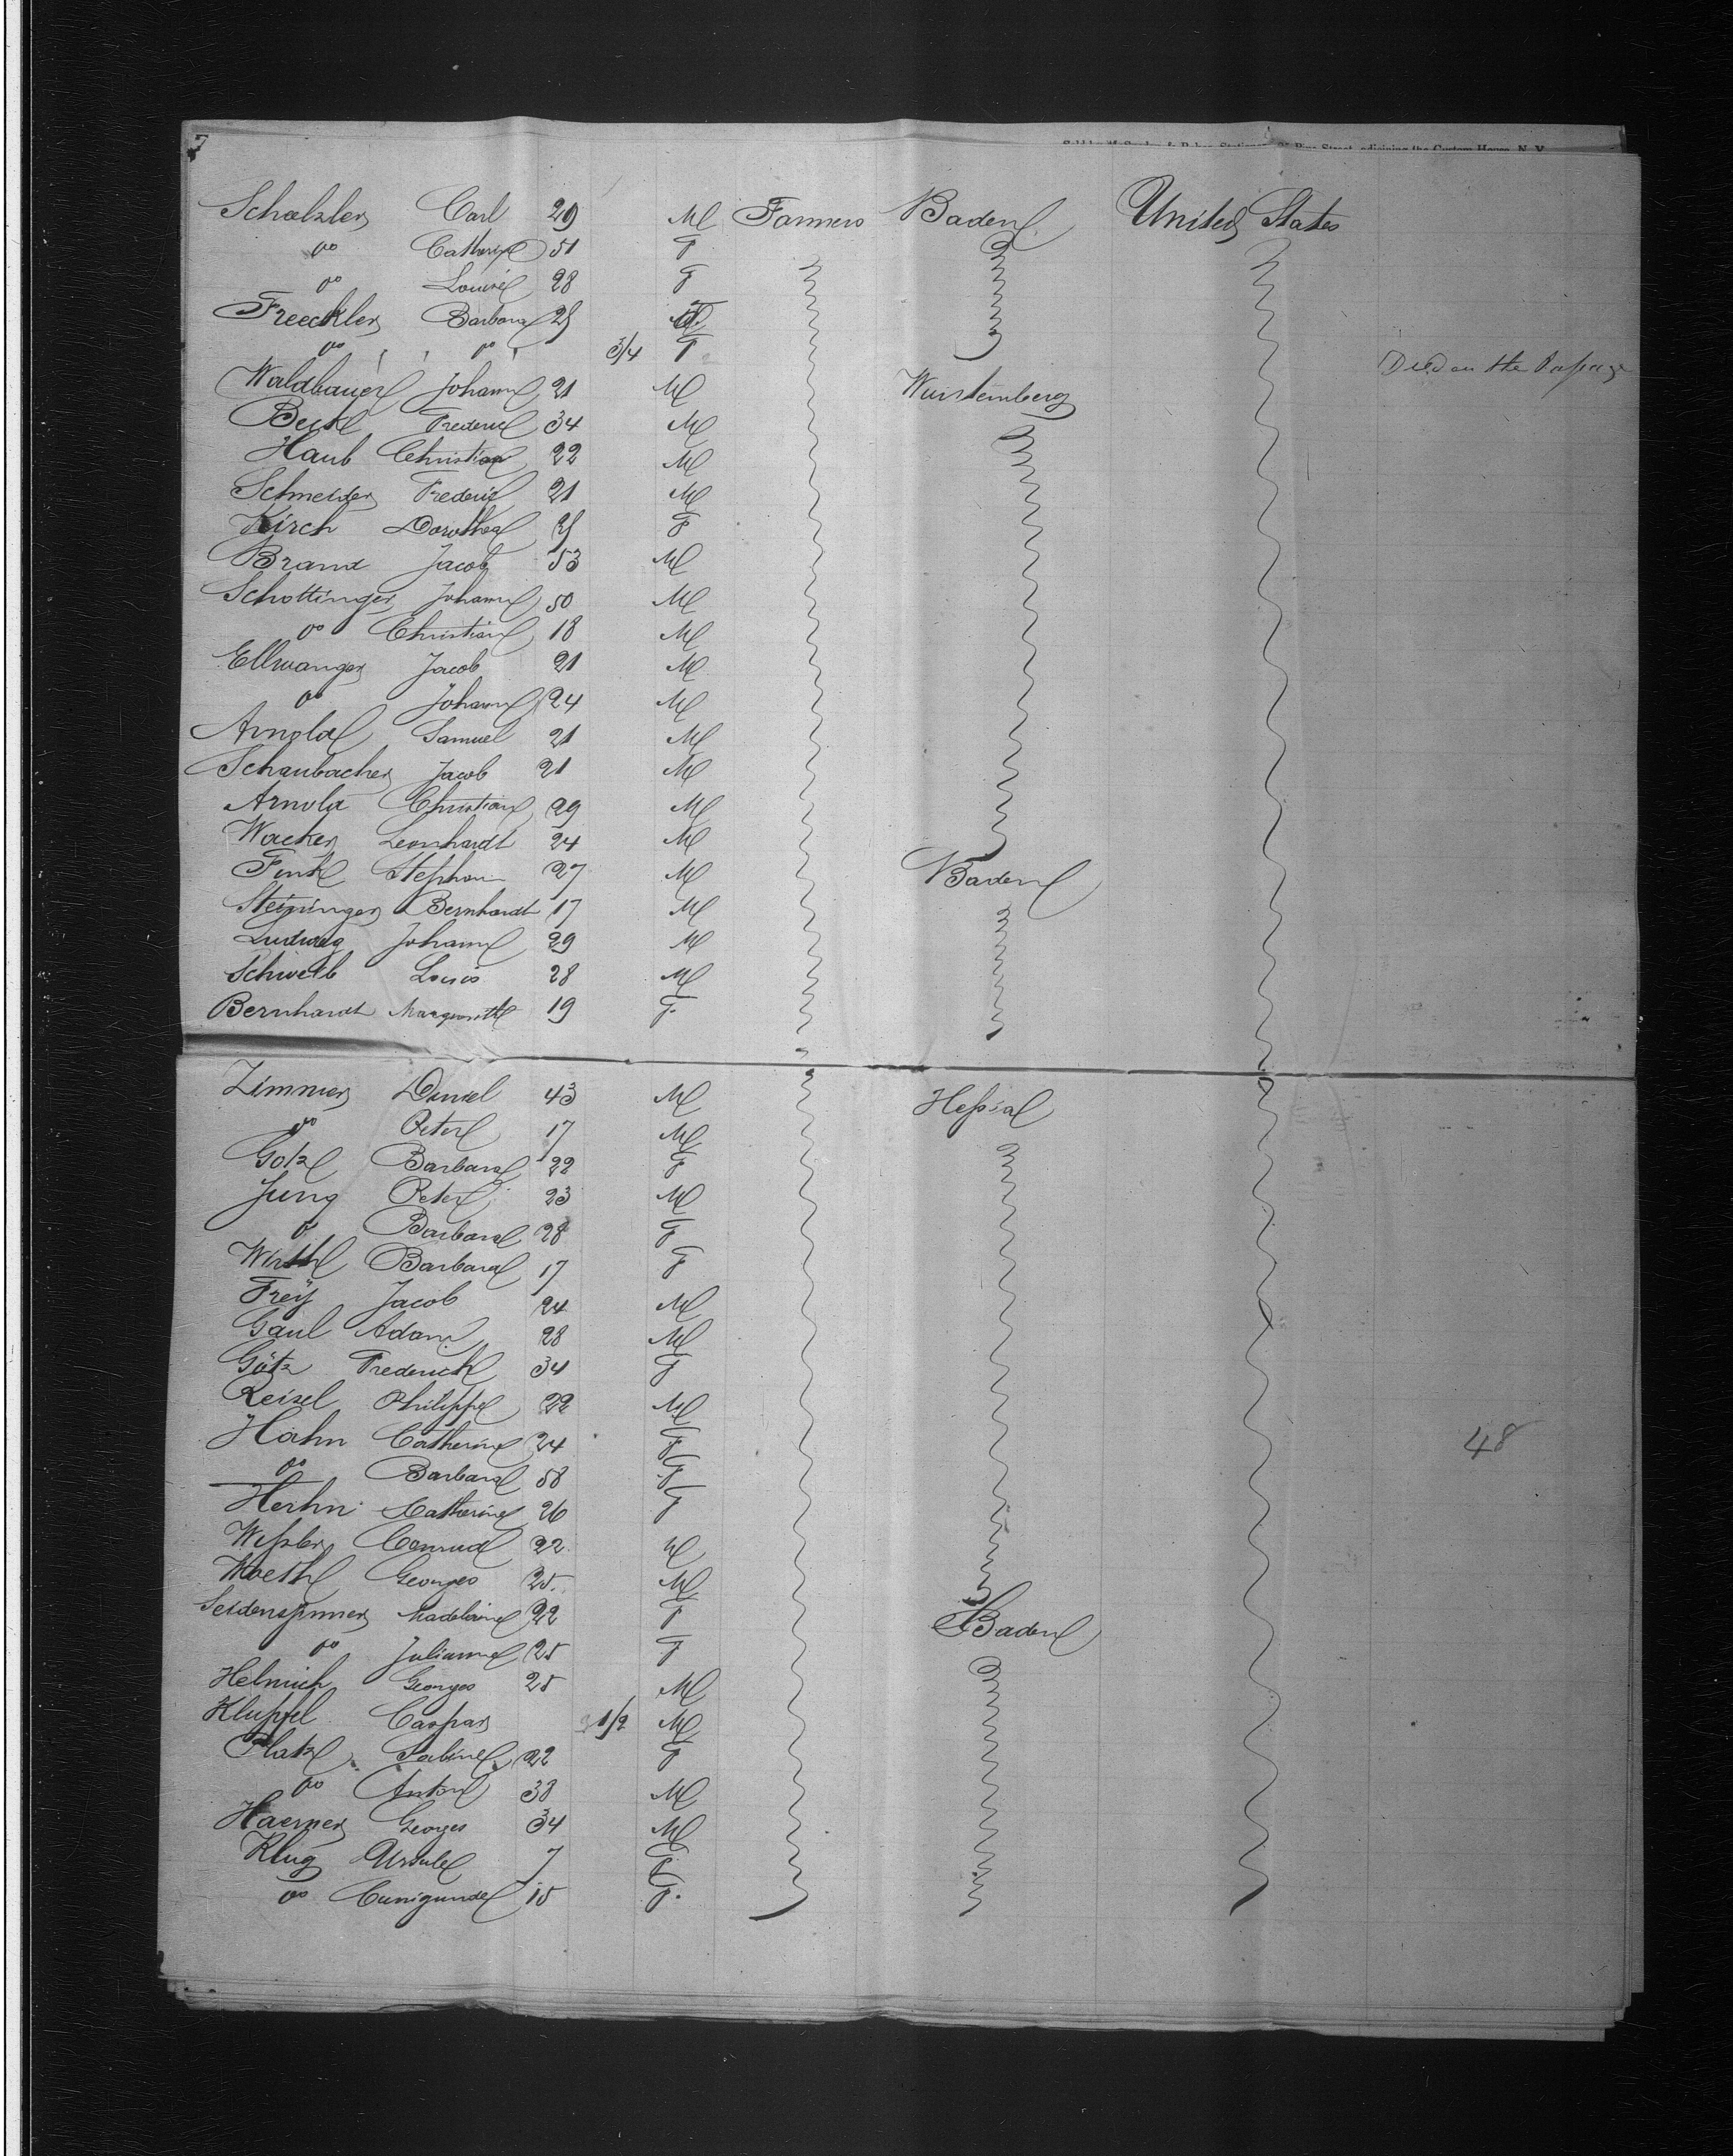 7
Schælzler Carl 29 M Farmers Baden United States
do Catherine 51 F
do Louise 28 F
Freeckler Barbara 25 F
do " do " 3/4 F Died on the Passage
Waldbauer Johann 21 M Würtemberg
Beck Frederic 34 M
Haub Christian 22 M
Schneider Frederic 21 M
Kirch Dorothea F
Brand Jacob 53 M
Schottinger Johann 50 M
do Christian 18 M
Ellwanger Jacob 21 M
do Johann 24 M
Arnold Samuel 21 M
Schaubacher Jacob 21 M
Arnold Christian 29 M
Wacker Leonhardt 24 M
Fink Stephan 27 M Baden
Steininger Bernhardt 17 M
Ludwig Johann 29 M
Schweib Louis 28 M
Bernhardt Marguerith 19 F.
Zimmer Daniel 43 M Hessia
do Peter 17 M
Gotz Barbara 22 F
Jung Peter 23 M
do Barbara 28 F
Wirth Barbara 17 F
Frey Jacob 24 M
Gaul Adam 28 M
Götz Frederick 34 F
Reisel Philippe 22 M
Hahn Catherine 24 F 48
do Barbara 58 F
Herhn Catherine 26 F
Weszler Conrad 22 M
Woeth Georges 25. M
Seidenspinner Madeleine 22 F Baden
do Julianne 25 F
Helmich Georges 25 M
Klupfel Caspar 1/2 M
Platz Sabine 22 F
do Anton 38 M
Haerner Georges 34 M
Klug Ursule 7 F
do Cunigunde 15 F.